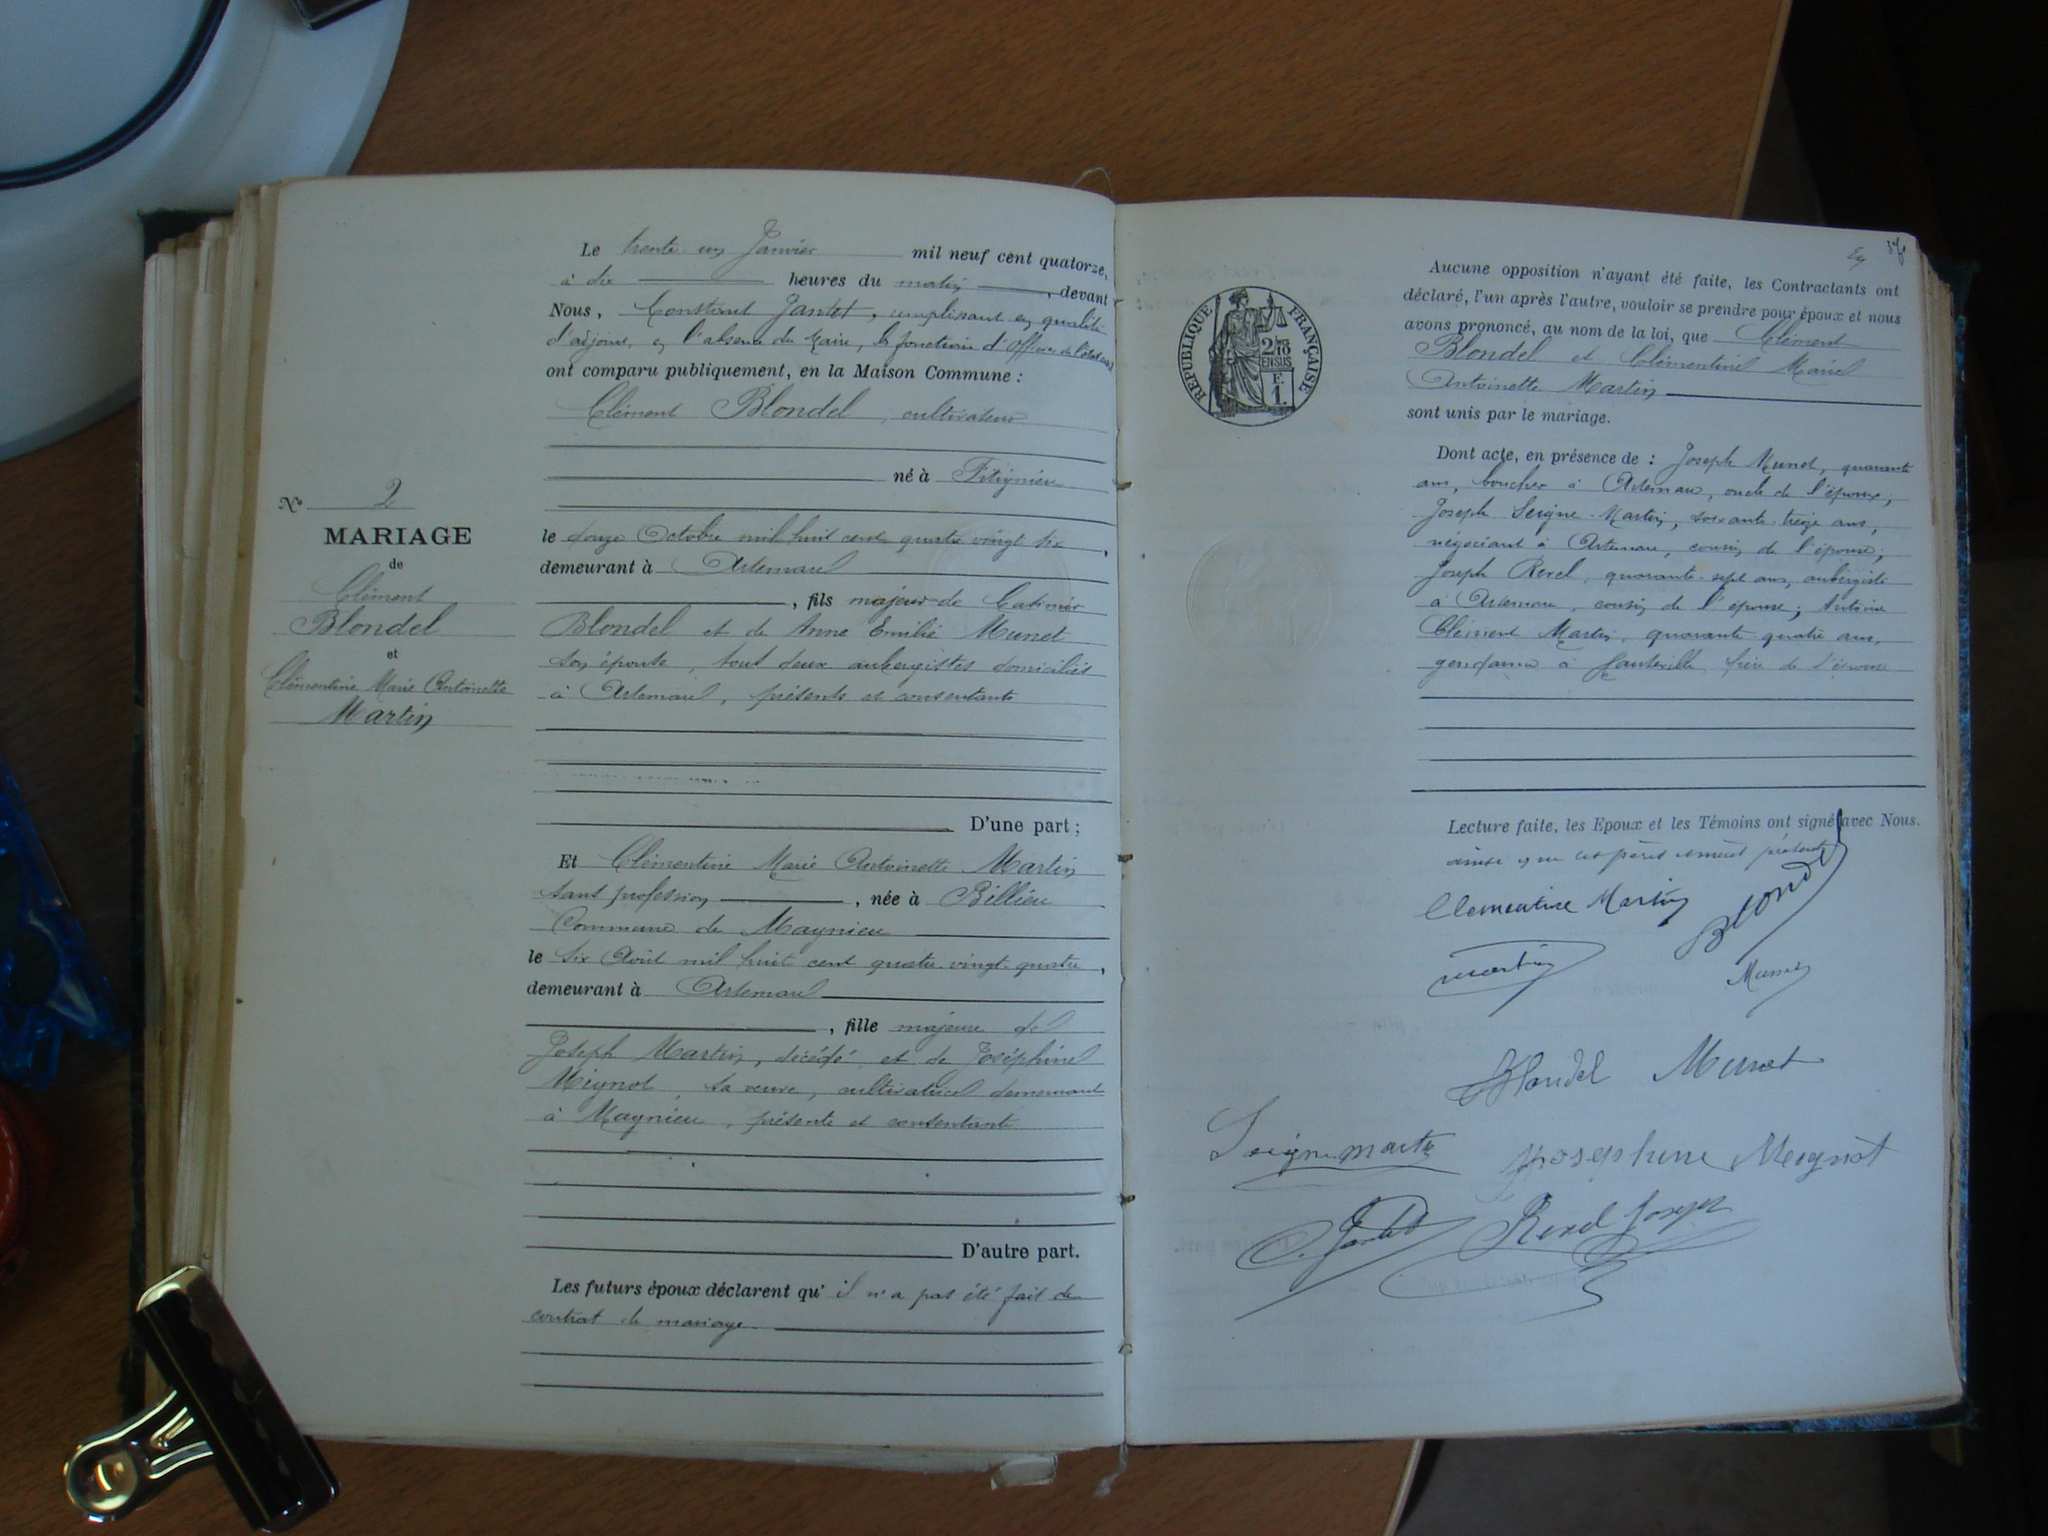 Le trente un Janvier mil neuf cent quatorze,
à dix heures du matin, devant
Nous, Constant Jantet, remplissant en qualité
d'adjoint, en l'absence du Maire, les fonctions d'Officier de l'état civil
ont comparu publiquement, en la Maison Commune :
Clément Blondel, cultivateur
né à Fitignieu
le douze Octobre mil huit cent quatre vingt six,
demeurant à Artemare
, fils majeur de Casimir
Blondel et de Anne Emilie Munet
son épouse, tout deux aubergistes domiciliés
à Artemare, présents et consentants
D'une part ;
Et Clémentine Marie Antoinette Martin
sans profession, née à Billieu
Commune de Magnieu
le six Août mil huit cent quatre-vingt-quatre,
demeurant à Artemare
, fille majeure de
Joseph Martin, décédé et de Joséphine
Mignot, sa veuve, cultivatrice demeurant
à Magnieu, présente et consentante
D'autre part.
Les futurs époux déclarent qu'il n'a pas été fait de
contrat de mariage
N° 2
MARIAGE
de
Clément
Blondel
et
Clémentine Marie Antoinette
Martin
RÉPUBLIQUE FRANÇAISE
2/10 EN SUS
F. 1.
Aucune opposition n'ayant été faite, les Contractants ont
déclaré, l'un après l'autre, vouloir se prendre pour époux et nous
avons prononcé, au nom de la loi, que Clément
Blondel et Clémentine Marie
Antoinette Martin
sont unis par le mariage.
Dont acte, en présence de : Joseph Munet, quarante
ans, boucher à Artemare, oncle de l'époux;
Joseph Seigne-Martin, soixante-treize ans,
négociant à Artemare, cousin de l'épouse;
Joseph Revel, quarante-sept ans, aubergiste
à Artemare, cousin de l'épouse; Antoine
Clément Martin, quarante quatre ans,
gendarme à Hauteville frère de l'épouse
Lecture faite, les Epoux et les Témoins ont signé avec Nous.
ainsi que les pères et mères présents
Clementine Martin Blondel
Martin
Munet
Blondel Munet
Seigne martin Josephine Meignot
C. Jantet Revel Joseph